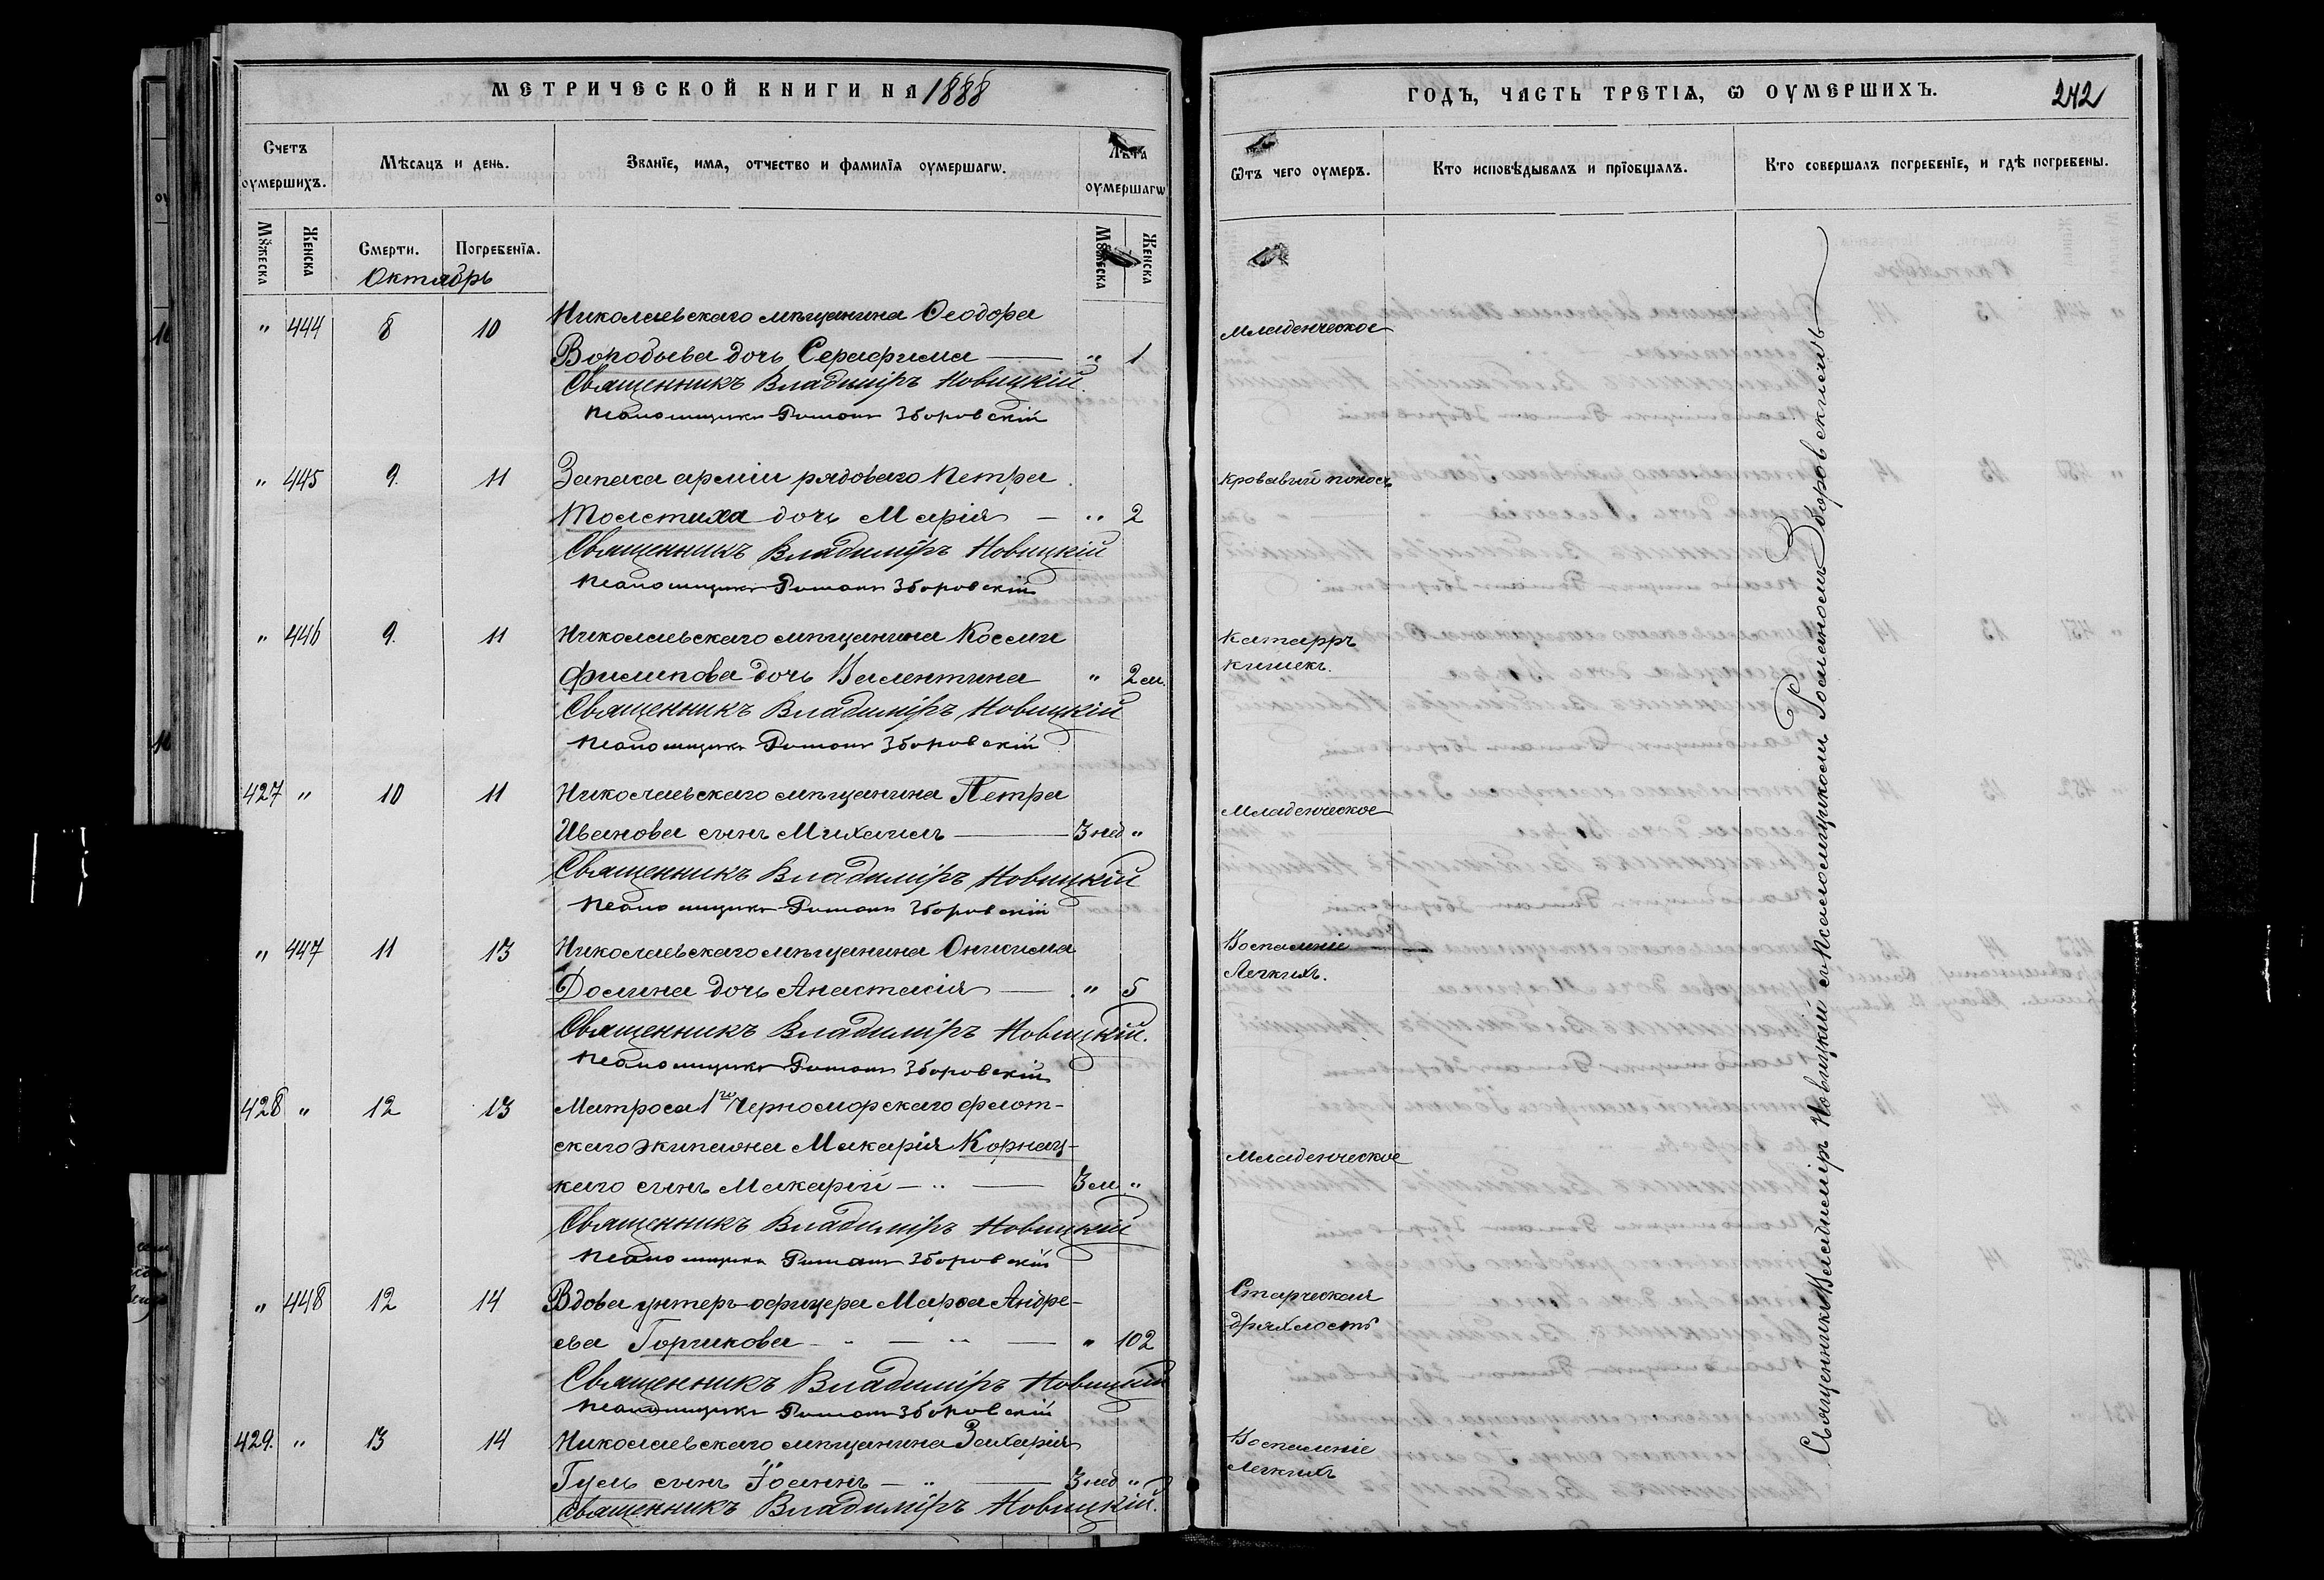 МЕТРИЧЕСКОЙ КНИГИ НА 1888
Счетъ оумершихъ.
Мѣсяцъ и день.
Званїе, имя, отчество и фамилїя оумершагѡ.
Лѣта оумершагѡ
Мꙋжеска
Женска
Смерти.
Погребенїя.
Мꙋжеска
Женска
Октябрь
" 444 8 10 Николаевскаго мѣщанина Ѳеодора
Воробьева дочь Серафима — " 1
Священникъ Владиміръ Новицкій
Псаломщикъ Романъ Зборовскій
" 445 9. 11 Запаса арміи рядоваго Петра
Толстиха дочь Марія — " 2
Священникъ Владиміръ Новицкій
Псаломщикъ Романъ Зборовскій
" 446 9. 11 Николаевскаго мѣщанина Косьмы
Филипова дочь Валентина " 2 м.
Священникъ Владиміръ Новицкій
Псаломщикъ Романъ Зборовскій
427 " 10 11 Николаевскаго мѣщанина Петра
Иванова сынъ Михаилъ — 3 нед "
Священникъ Владиміръ Новицкій
Псаломщикъ Романъ Зборовскій
" 447 11 13 Николаевскаго мѣщанина Онисима
Долина дочь Анастасія — " 5
Священникъ Владиміръ Новицкій.
Псаломщикъ Романъ Зборовскій
428 " 12 13 Матроса 1го Черноморскаго флот-
скаго экипажа Макарія Корнац-
каго сынъ Макарій — " — 3 м. "
Священникъ Владиміръ Новицкій
Псаломщикъ Романъ Зборовскій
" 448 12 14 Вдова унтеръ-офицера Марѳа Андре-
ева Горчикова — " 102
Священникъ Владиміръ Новицкій
Псаломщикъ Романъ Зборовскій
429. " 13 14 Николаевскаго мѣщанина Захарія
Гуль сынъ Іоаннъ — " — 3 нед "
Священникъ Владиміръ Новицкій.
ГОДЪ, ЧАСТЬ ТРЕТІѦ, Ѡ ОУМЕРШИХЪ.
242
Ѿтъ чего оумеръ.
Кто исповѣдывалъ и прїобщалъ.
Кто совершалъ погребенїе, и гдѣ погребены.
Младенческое
Кровавый поносъ
Катарръ
кишекъ.
Младенческое
Воспаленіе
Легкихъ.
Младенческое
Старческая
дряхлость
Воспаленіе
Легкихъ
Священникъ Владиміръ Новицкій съ Псаломщикомъ Романомъ Зборовскимъ